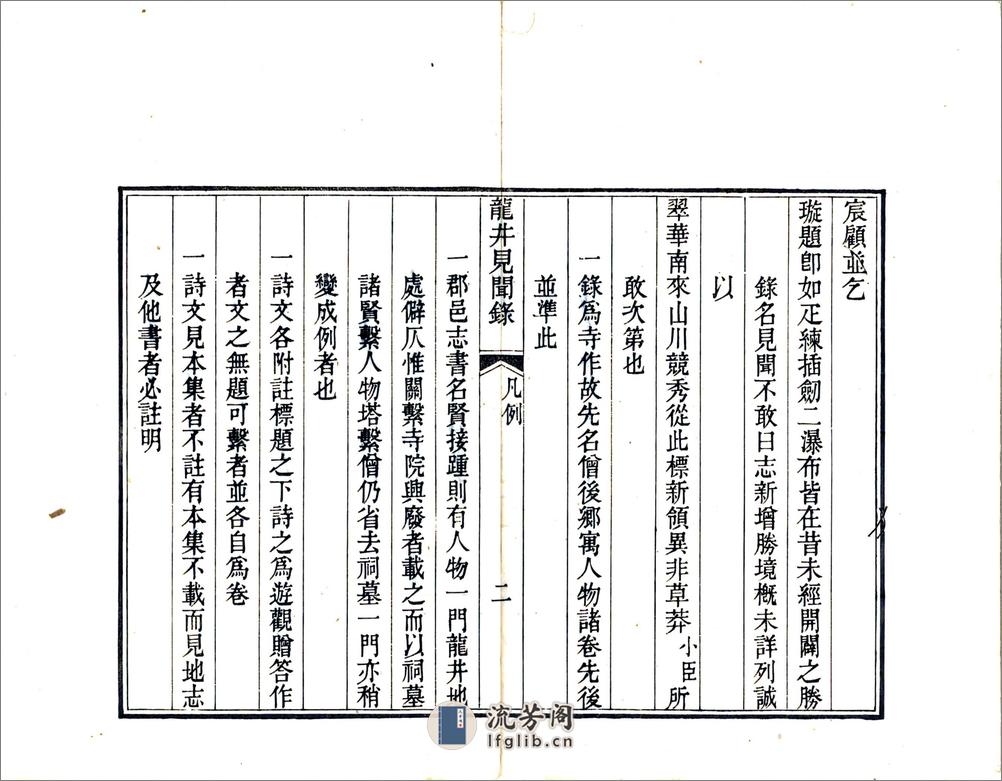 宸顧並乞
璇題卽如疋練插劒二瀑布皆在昔未經開闢之勝
錄名見聞不敢曰志新增勝境槪未詳列誠
以
翠華南來山川競秀從此標新領異非草莽小臣所
敢次第也
一錄爲寺作故先名僧後鄉寓人物諸卷先後
並準此
龍井見聞錄 凡例 二
一郡邑志書名賢接踵則有人物一門龍井地
處僻仄惟關繫寺院興廢者載之而以祠墓
諸賢繫人物塔繫僧仍省去祠墓一門亦稍
變成例者也
一詩文各附註標題之下詩之爲遊觀贈答作
者文之無題可繫者並各自爲卷
一詩文見本集者不註有本集不載而見地志
及他書者必註明
流芳阁
lfglib.cn